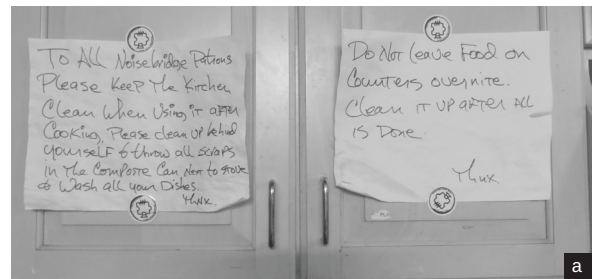 To All Noisebridge Patrons
Please Keep The Kitchen
Clean when Using it after
Cooking, Please clean up behind
yourself & throw all scraps
in The Composte Can Next to stove
& Wash all your Dishes.
Thnx.
Do Not leave Food on
Counters overnite.
Clean IT UP after All
is Done.
Thnx
a